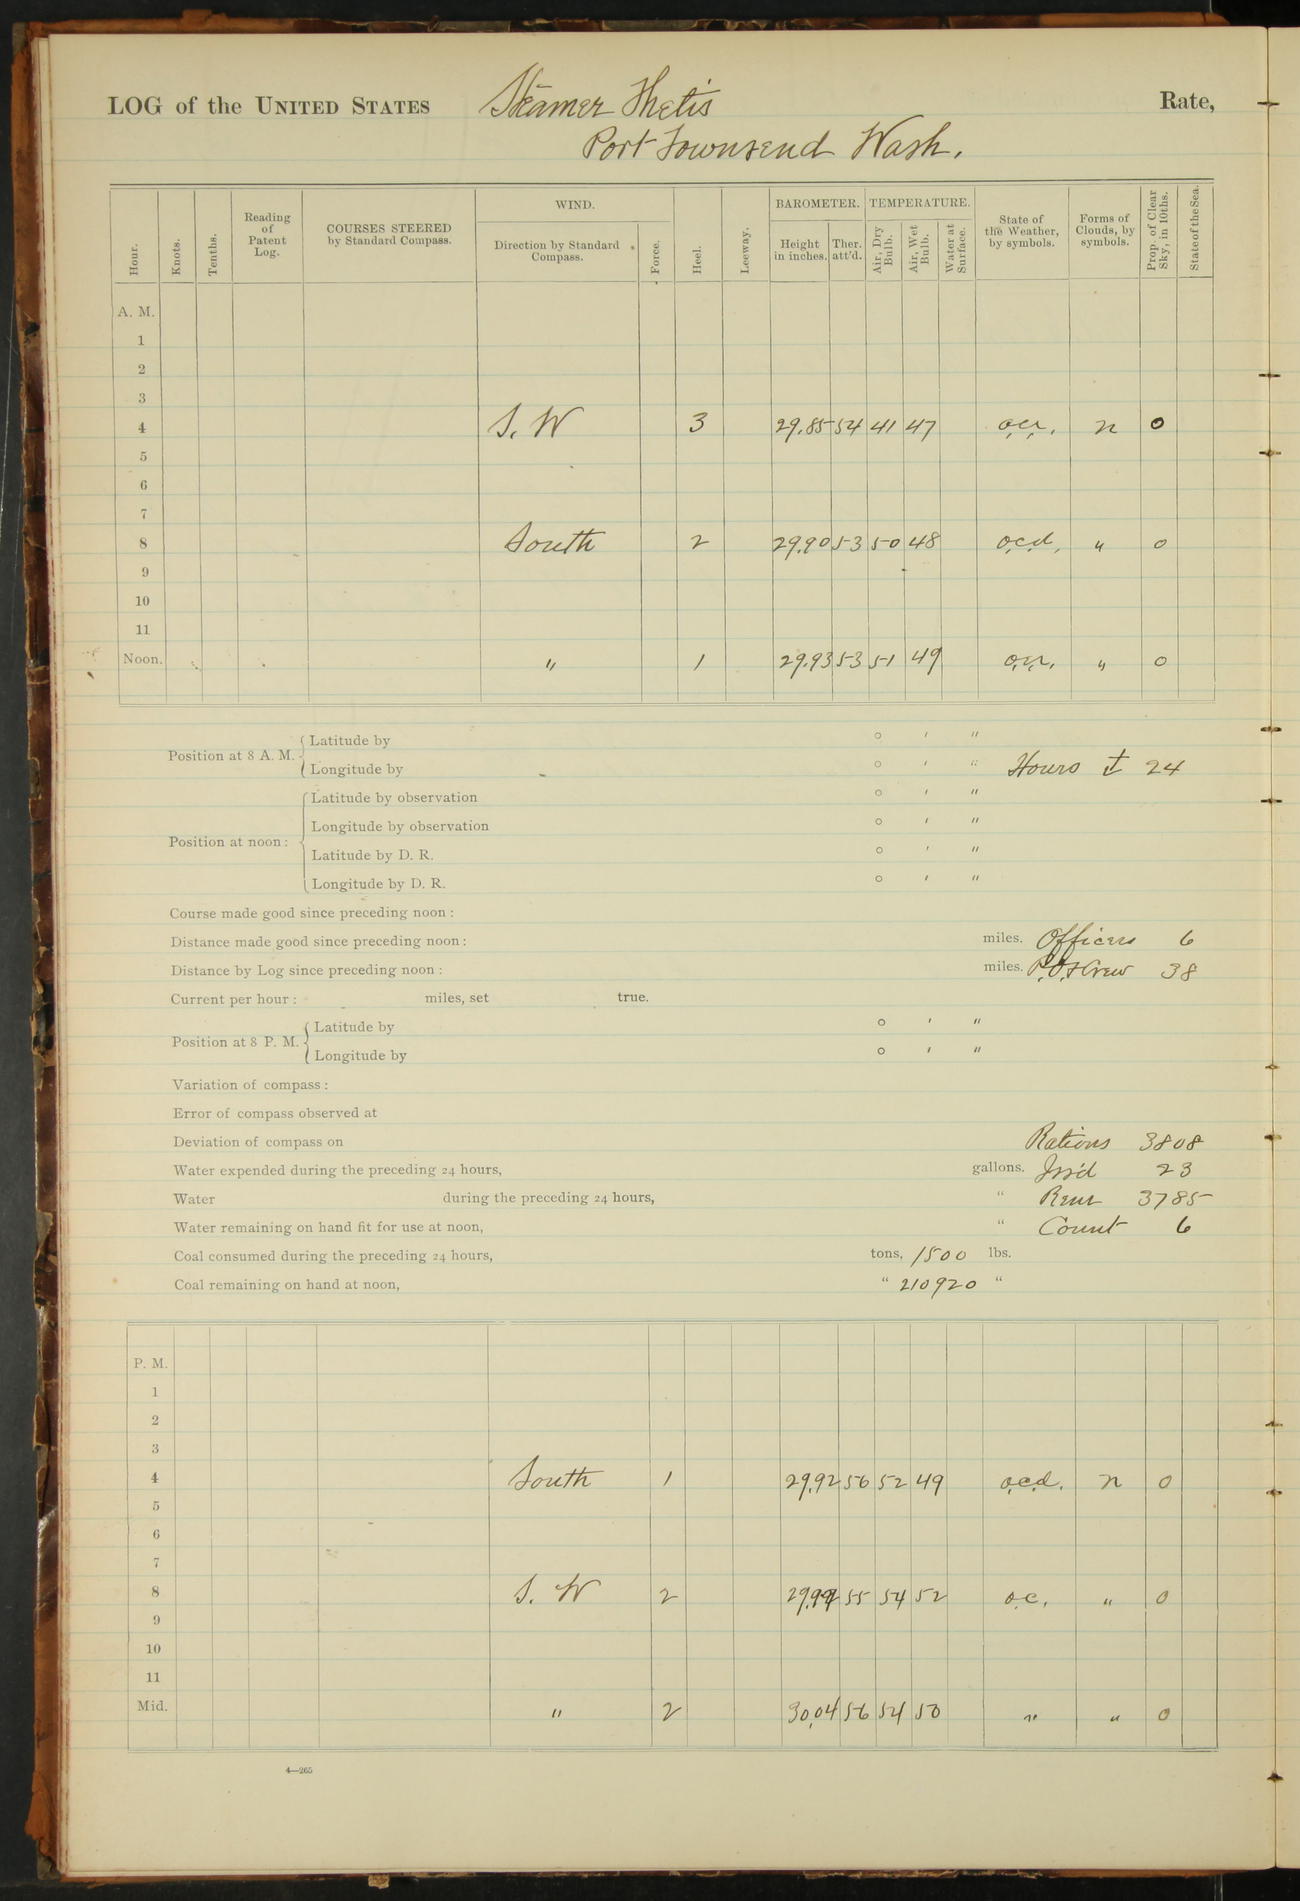 LOG of the UNITED STATES Steamer Thetis Rate,
Port Townsend Wash.
Hour. Knots. Tenths. Reading of Patent Log. COURSES STEERED by Standard Compass. WIND. Direction by Standard Compass. Force. Heel. Leeway. BAROMETER. Height in inches. Ther. att'd. TEMPERATURE. Air, Dry Bulb. Air, Wet Bulb. Water at Surface. State of the Weather, by symbols. Forms of Clouds, by symbols. Prop. of Clear Sky, in 10ths. State of the Sea.
A. M.
1
2
3
4 S. W 3 29.85 54 41 47 o.c.r. n 0
5
6
7
8 South 2 29.90 53 50 48 o.c.d. " 0
9
10
11
Noon. " 1 29.93 53 51 49 o.c.r. " 0
Position at 8 A. M. Latitude by ° ′ ″
Longitude by ° ′ ″ Hours 24
Position at noon: Latitude by observation ° ′ ″
Longitude by observation ° ′ ″
Latitude by D. R. ° ′ ″
Longitude by D. R. ° ′ ″
Course made good since preceding noon:
Distance made good since preceding noon: miles. Officers 6
Distance by Log since preceding noon: miles. P.O. & Crew 38
Current per hour: miles, set true.
Position at 8 P. M. Latitude by ° ′ ″
Longitude by ° ′ ″
Variation of compass:
Error of compass observed at
Deviation of compass on Rations 3808
Water expended during the preceding 24 hours, gallons. Iss'd 23
Water during the preceding 24 hours, " Rem 3785
Water remaining on hand fit for use at noon, " Count 6
Coal consumed during the preceding 24 hours, tons, 1500 lbs.
Coal remaining on hand at noon, " 210920 "
P. M.
1
2
3
4 South 1 29.92 56 52 49 o.c.d. n 0
5
6
7
8 S. W 2 55 54 52 o.c. " 0
9
10
11
Mid. " 2 30.04 56 54 50 " " 0
4—265